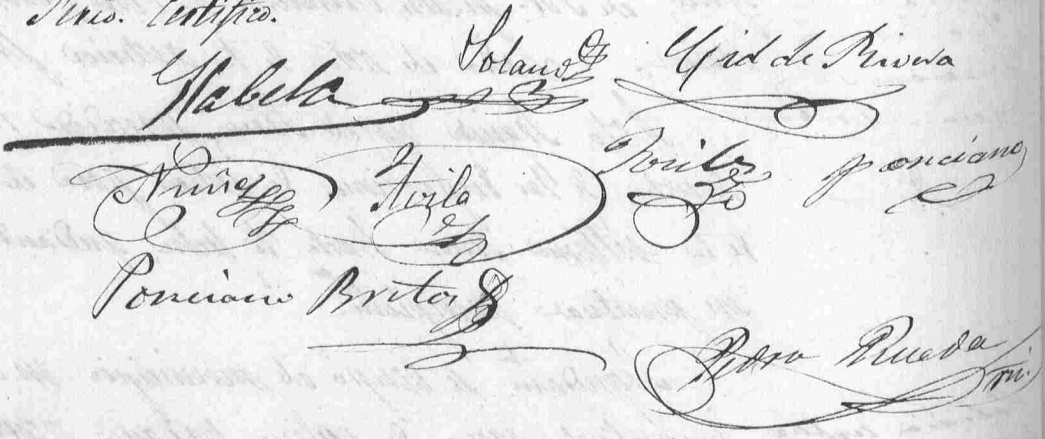 Srio. Certifico.
Habela Solano Gid de Rivera
Nuñez Avila Ponciano
Ponciano Britos
Pedro Rueda
Srio.